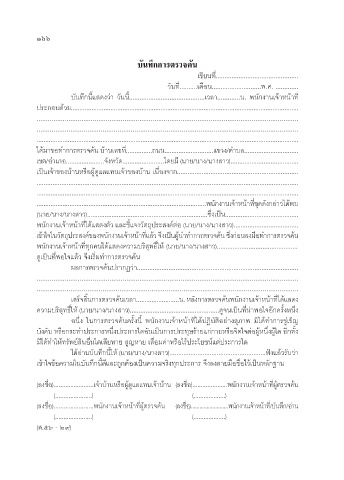 ๑๖๖
บันทึกการตรวจค้น
เขียนที่................................................
วันที่..........เดือน............................พ.ศ. .............
บันทึกนี้แสดงว่า วันนี้............................................เวลา.............น. พนักงานเจ้าหน้าที่
ประกอบด้วย..................................................................................................................................
..................................................................................................................................................
..................................................................................................................................................
..................................................................................................................................................
ได้มาขอทำการตรวจค้น บ้านเลขที่...............ถนน............................แขวง/ตำบล................................
เขต/อำเภอ......................จังหวัด........................โดยมี (นาย/นาง/นางสาว).......................................
เป็นเจ้าของบ้านหรือผู้ดูแลแทนเจ้าของบ้าน เนื่องจาก.....................................................................
..................................................................................................................................................
..................................................................................................................................................
...............................................................................................พนักงานเจ้าหน้าที่ชุดดังกล่าวได้พบ
(นาย/นาง/นางสาว)...................................................................ซึ่งเป็น...................................................
พนักงานเจ้าหน้าที่ได้แสดงตัว และชี้แจงวัตถุประสงค์ต่อ (นาย/นาง/นางสาว).....................................
เข้าใจในวัตถุประสงค์ของพนักงานเจ้าหน้าที่แล้ว จึงเป็นผู้นำทำการตรวจค้น ซึ่งก่อนลงมือทำการตรวจค้น
พนักงานเจ้าหน้าที่ทุกคนได้แสดงความบริสุทธิ์ให้ (นาย/นาง/นางสาว)..............................................
ดูเป็นที่พอใจแล้ว จึงเริ่มทำการตรวจค้น
ผลการตรวจค้นปรากฏว่า.........................................................................................
..................................................................................................................................................
..................................................................................................................................................
เสร็จสิ้นการตรวจค้นเวลา........................น. หลังการตรวจค้นพนักงานเจ้าหน้าที่ได้แสดง
ความบริสุทธิ์ให้ (นาย/นาง/นางสาว)..................................................ดูจนเป็นที่น่าพอใจอีกครั้งหนึ่ง
อนึ่ง ในการตรวจค้นครั้งนี้ พนักงานเจ้าหน้าที่ได้ปฏิบัติอย่างสุภาพ มิได้ทำการขู่เข็ญ
บังคับ หรือกระทำประการหนึ่งประการใดอันเป็นการประทุษร้ายแก่กายหรือจิตใจต่อผู้หนึ่งผู้ใด อีกทั้ง
มิได้ทำให้ทรัพย์สินอื่นใดเสียหาย สูญหาย เสื่อมค่าหรือไร้ประโยชน์แต่ประการใด
ได้อ่านบันทึกนี้ให้ (นาย/นาง/นางสาว)......................................................ฟังแล้วรับว่า
เข้าใจข้อความในบันทึกนี้ดีและถูกต้องเป็นความจริงทุกประการ จึงลงลายมือชื่อไว้เป็นหลักฐาน
(ลงชื่อ).......................เจ้าบ้านหรือผู้ดูแลแทนเจ้าบ้าน (ลงชื่อ)....................พนักงานเจ้าหน้าที่ผู้ตรวจค้น
(.....................) (...................)
(ลงชื่อ).......................พนักงานเจ้าหน้าที่ผู้ตรวจค้น (ลงชื่อ).....................พนักงานเจ้าหน้าที่/บันทึก/อ่าน
(.....................) (...................)
(ค.๕๖ - ๒๙)